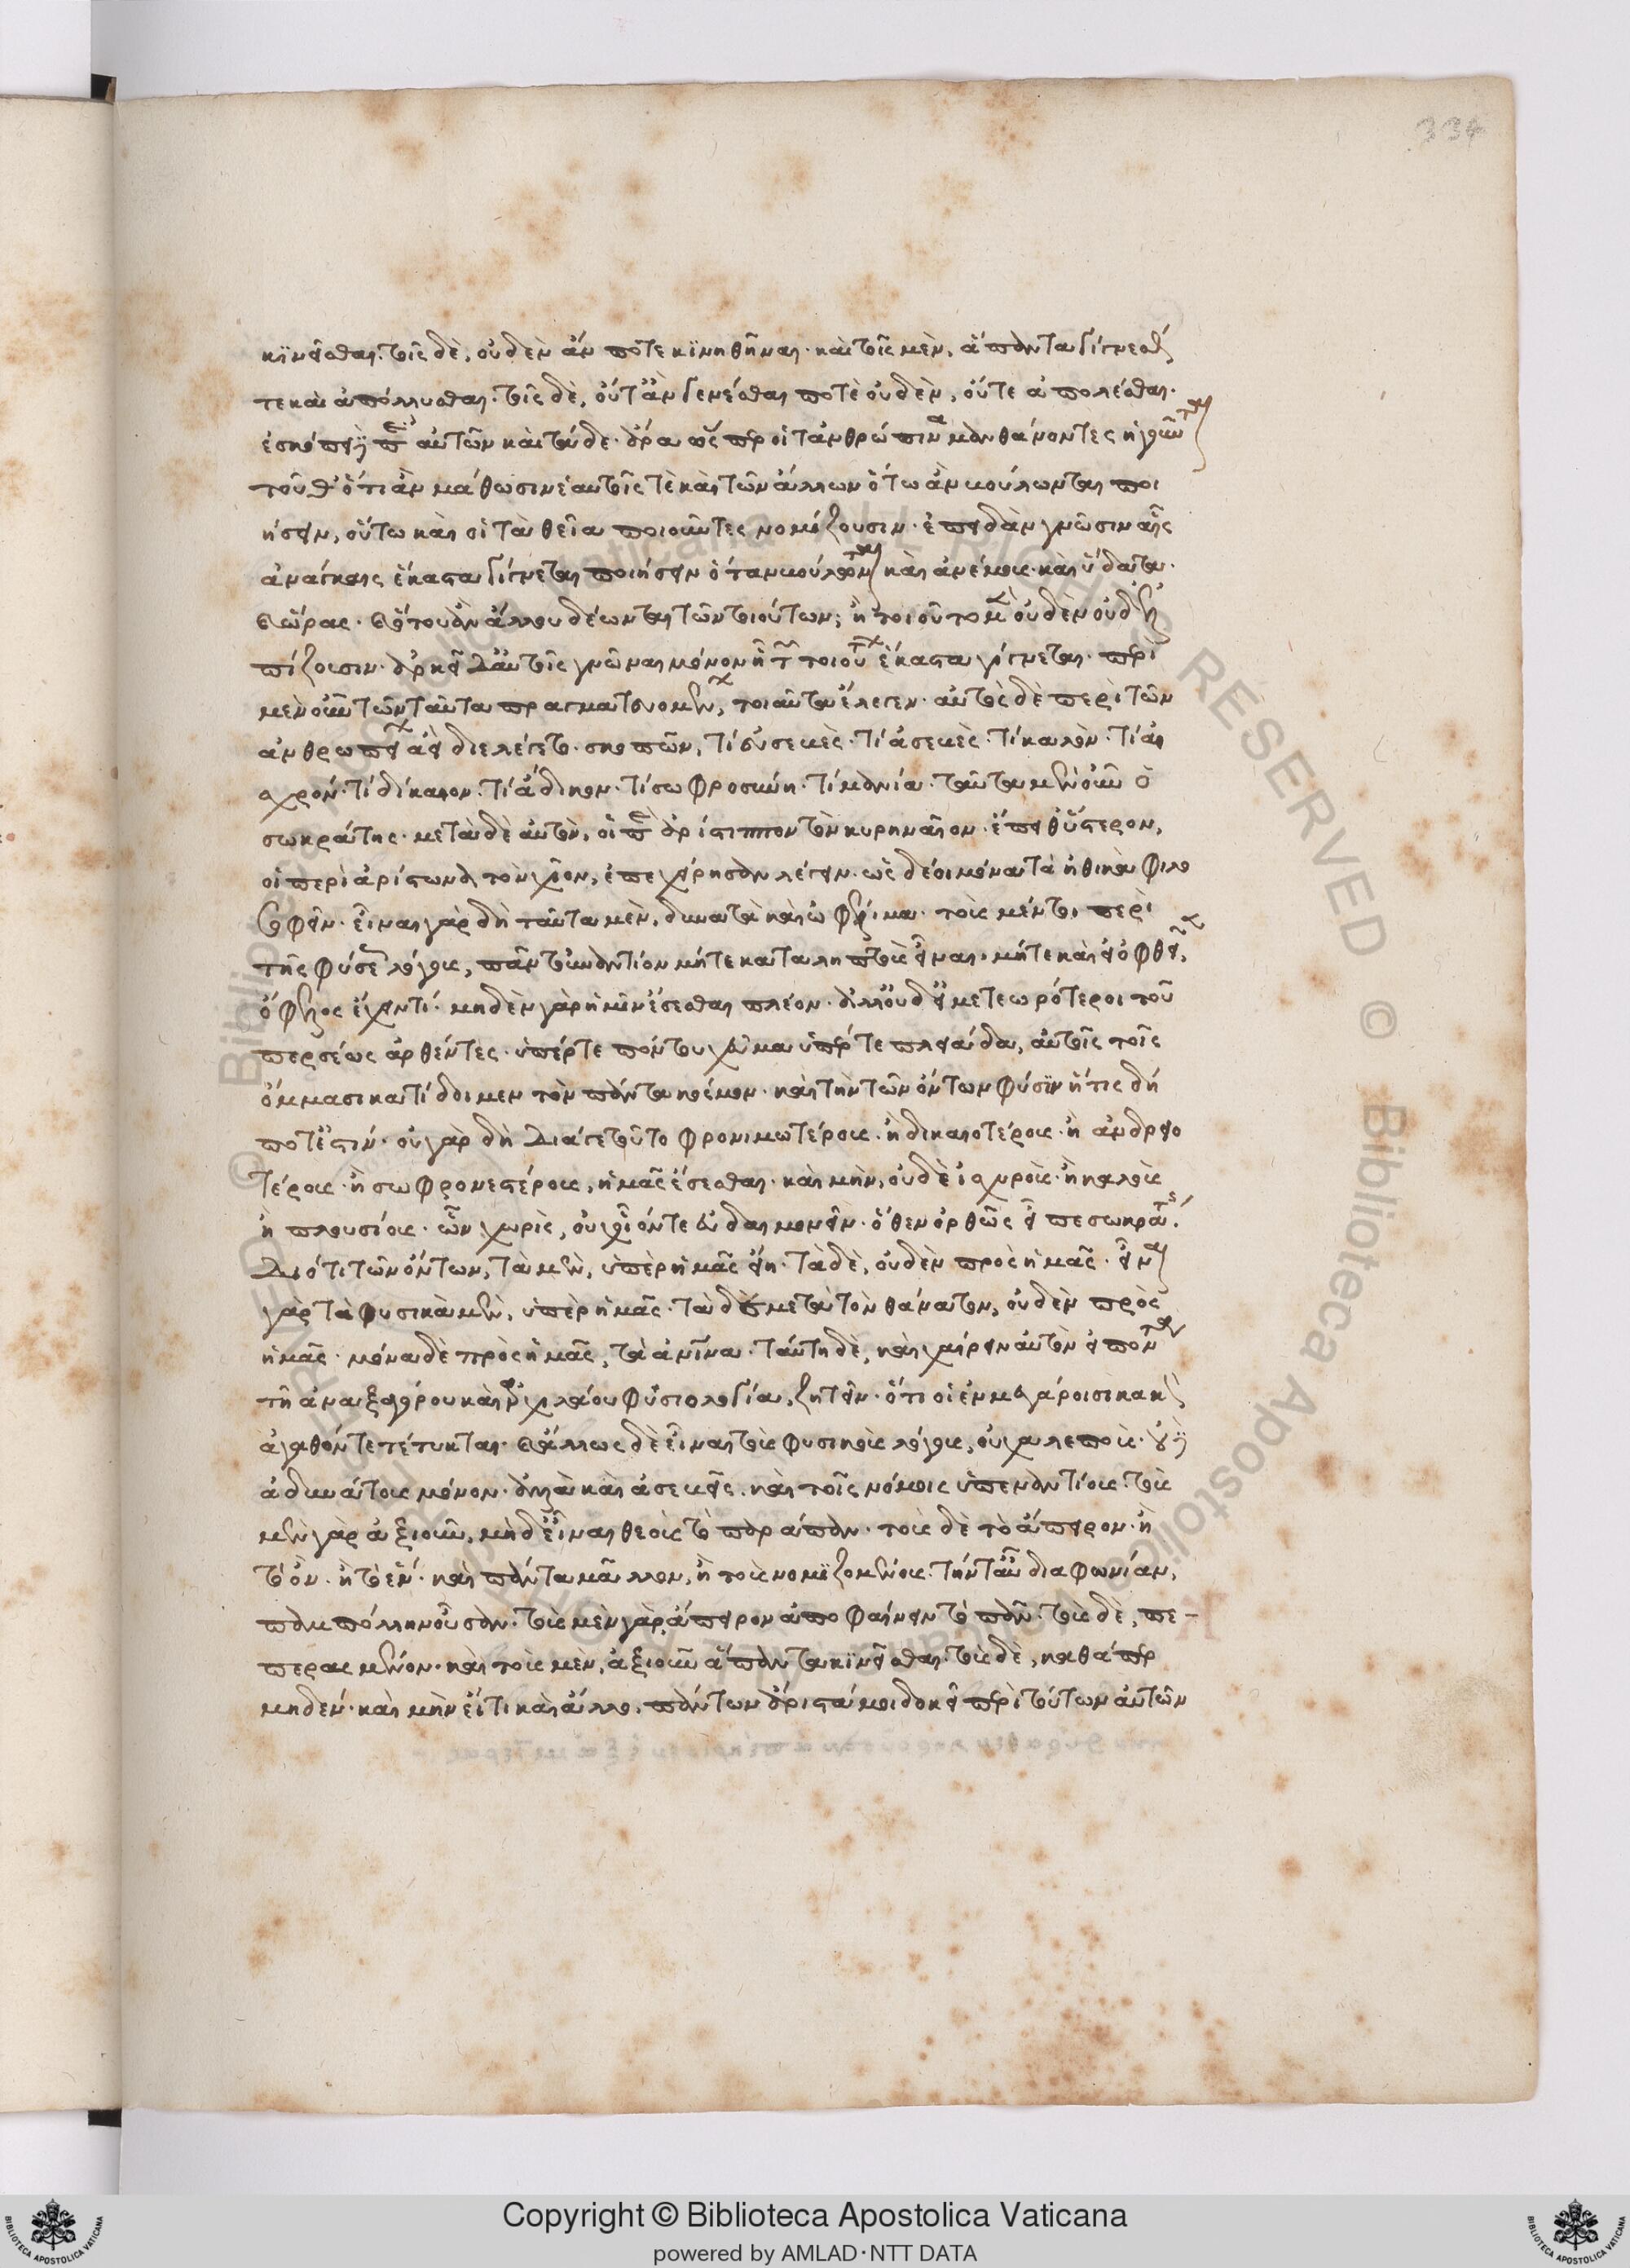 334
κινεῖσθαι· τοῖς δὲ, οὐδὲν ἄν ποτε κινηθῆναι· καὶ τοῖς μὲν, ἅπαντα γίγνεσθαι
τε καὶ ἀπόλλυσθαι· τοῖς δὲ, οὔτ' ἂν γενέσθαι ποτὲ οὐδὲν, οὔτε ἀπολέσθαι·
ἐσκόπει δὲ περὶ αὐτῶν καὶ τάδε· ἆρα ὥσπερ οἱ τἀνθρώπινα μανθάνοντες ἡγοῦνται
τοῦθ' ὅτι ἂν μάθωσιν ἑαυτοῖς τὲ καὶ τῶν ἄλλων ὅτω ἂν βούλωνται ποι
ήσειν, οὕτω καὶ οἱ τὰ θεῖα ποιοῦντες νομίζουσιν· ἐπειδὰν γνῶσιν αἷς
ἀνάγκαις ἕκαστα γίγνεται ποιήσειν ὅταν βούλωνται καὶ ἀνέμους· καὶ ὕδατα·
καὶ ὥρας· καὶ ὅτου ἂν ἄλλου δέωνται τῶν τοιούτων; ἢ τοιοῦτο μὲν οὐδὲν οὐδ' ἐλ
πίζουσιν· ἀρκεῖ δ' αὐτοῖς γνῶναι μόνον ᾗ τῶν τοιούτων ἕκαστα γίγνεται· περὶ
μὲν οὖν τῶν ταῦτα πραγματευομένων, τοιαῦτα ἔλεγεν· αὐτὸς δὲ περὶ τῶν
ἀνθρωπείων ἀεὶ διελέγετο· σκοπῶν, τί εὐσεβὲς· τί ἀσεβὲς· τί καλὸν· τί αἰ
σχρόν· τί δίκαιον· τί ἄδικον· τί σωφροσύνη· τί μανία· ταῦτα μὲν οὖν ὁ
σωκράτης· μετὰ δὲ αὐτὸν, οἱ περὶ ἀρίστιππον τὸν κυρηναῖον· ἔπειθ' ὕστερον,
οἱ περὶ ἀρίστωνα τὸν χῖον, ἐπεχείρησαν λέγειν· ὡς δέοι μόνα τὰ ἠθικὰ φιλο
σοφεῖν· εἶναι γὰρ δὴ ταῦτα μὲν, δυνατὰ καὶ ὠφέλιμα· τοὺς μέντοι περὶ
τῆς φύσεως λόγους, πᾶν τοὐναντίον μήτε καταληπτοὺς εἶναι, μήτε καὶ εἰ ὀφθεῖεν,
ὄφελος ἔχειν τί· μηδὲν γὰρ ἡμῖν ἔσεσθαι πλέον· ἀλλ' οὐδ' εἰ μετεωρότεροι τοῦ
περσέως ἀρθέντες· ὑπέρ τε πόντου χεῦμα ὑπέρ τε πλειάδα, αὐτοῖς τοῖς
ὄμμασι κατίδοιμεν τὸν πάντα κόσμον· καὶ τὴν τῶν ὄντων φύσιν ἥτις δή
ποτ' ἐστίν· οὐ γὰρ δὴ διά γε τοῦτο φρονιμωτέρους· ἢ δικαιοτέρους· ἢ ἀνδρειο
τέρους· ἢ σωφρονεστέρους, ἡμᾶς ἔσεσθαι· καὶ μὴν, οὐδὲ ἰσχυροὺς· ἢ καλοὺς
ἢ πλουσίους· ὧν χωρὶς, οὐχ οἷόν τε εὐδαιμονεῖν· ὅθεν ὀρθῶς εἶπε σωκράτης·
διότι τῶν ὄντων, τὰ μὲν, ὑπὲρ ἡμᾶς εἴη· τὰ δὲ, οὐδὲν πρὸς ἡμᾶς· εἶναι
γὰρ τὰ φυσικὰ μὲν, ὑπὲρ ἡμᾶς· τὰ δὲ μετὰ τὸν θάνατον, οὐδὲν πρὸς
ἡμᾶς· μόνα δὲ πρὸς ἡμᾶς, τὰ ἀνθρώπινα· ταύτη δὲ, καὶ χαίρειν αὐτὸν εἰπόντα
τῆ ἀναξαγόρου καὶ ἀρχελάου φυσιολογία, ζητεῖν· ὅτι οἱ ἐν μεγάροισι κακόν
ἀγαθόν τε τέτυκται· καὶ ἄλλως δὲ εἶναι τοὺς φυσικοὺς λόγους, οὐ χαλεποὺς· οὐδὲ
ἀδυνάτους μόνον· ἀλλὰ καὶ ἀσεβεῖς· καὶ τοῖς νόμοις ὑπεναντίους· τοὺς
μὲν γὰρ ἀξιοῦν, μὴδ' εἶναι θεοὺς τὸ παράπαν· τοὺς δὲ τὸ ἄπειρον· ἢ
τὸ ὂν· ἢ τὸ ἕν· καὶ πάντα μᾶλλον, ἢ τοὺς νομιζομένους· τὴν τ' αὖ διαφωνίαν,
πάμπολλην οὖσαν· τοὺς μὲν γὰρ, ἄπειρον ἀποφαίνειν τὸ πᾶν· τοὺς δὲ, πε-
περασμένον· καὶ τοὺς μὲν, ἀξιοῦν ἅπαντα κινεῖσθαι· τοὺς δὲ, καθάπερ
μηδέν· καὶ μὴν εἴ τι καὶ ἄλλο, πάντων ἄριστά μοι δοκεῖ περὶ τούτων αὐτῶν
Copyright © Biblioteca Apostolica Vaticana
powered by AMLAD·NTT DATA